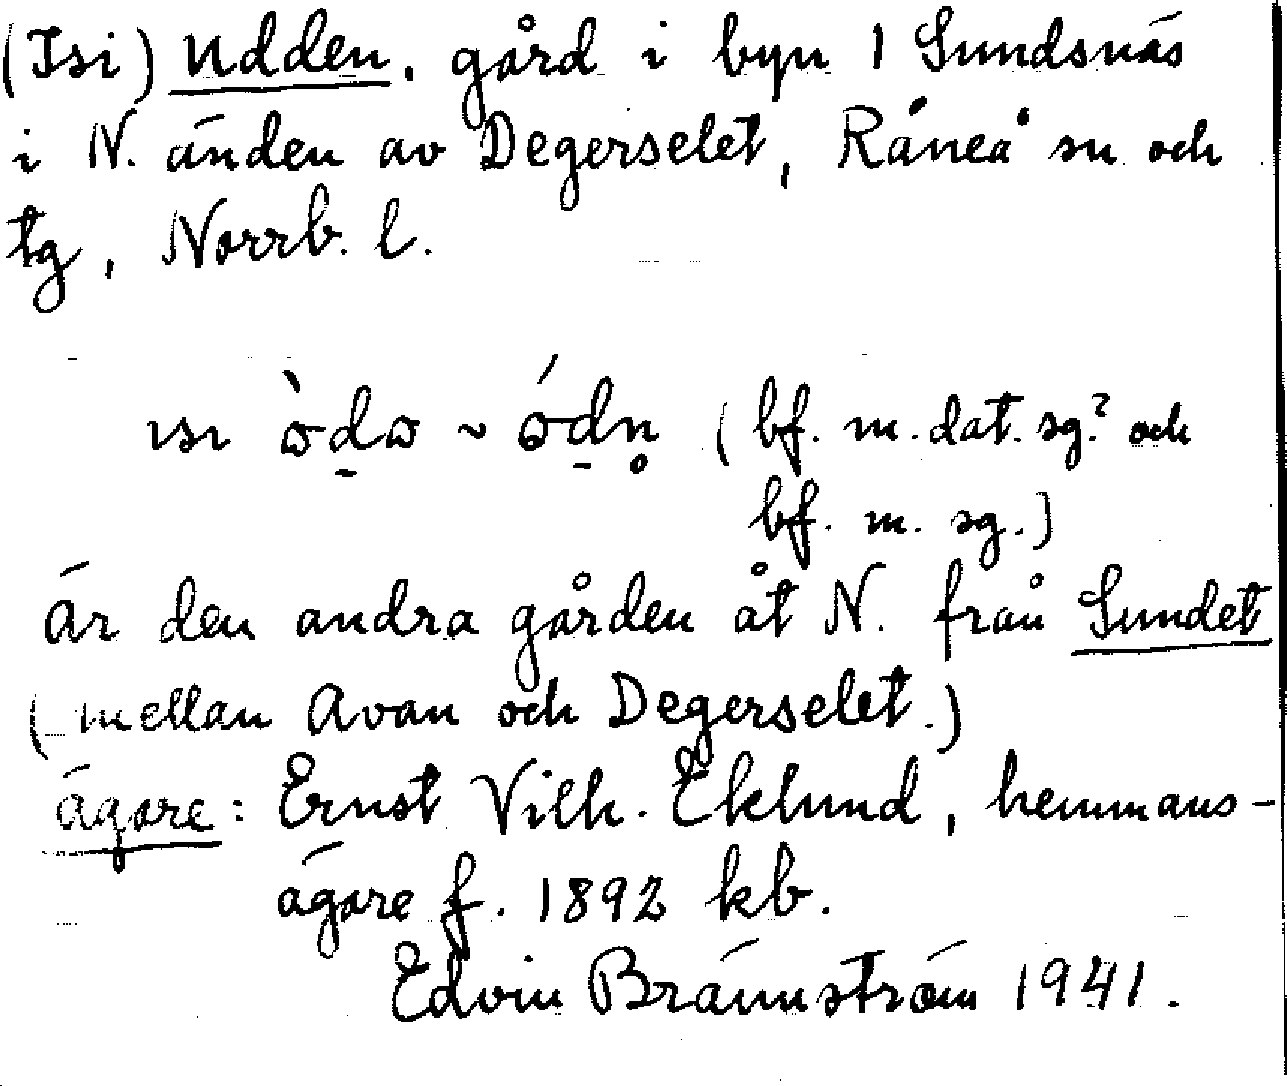 (Isi) Udden, gård i byn 1 Sundsnäs
i N. änden av Degerselet, Råneå sn och
tg, Norrb. l.
ısı ὼd̠ω ~ ώd̠n̥ (bf. m. dat. sg.? och
bf. m. sg.)
Är den andra gården åt N. från Sundet
(mellan Avan och Degerselet.)
ägare: Ernst Vilh. Eklund, hemmans-
ägare f. 1892 kb.
Edvin Brännström 1941.